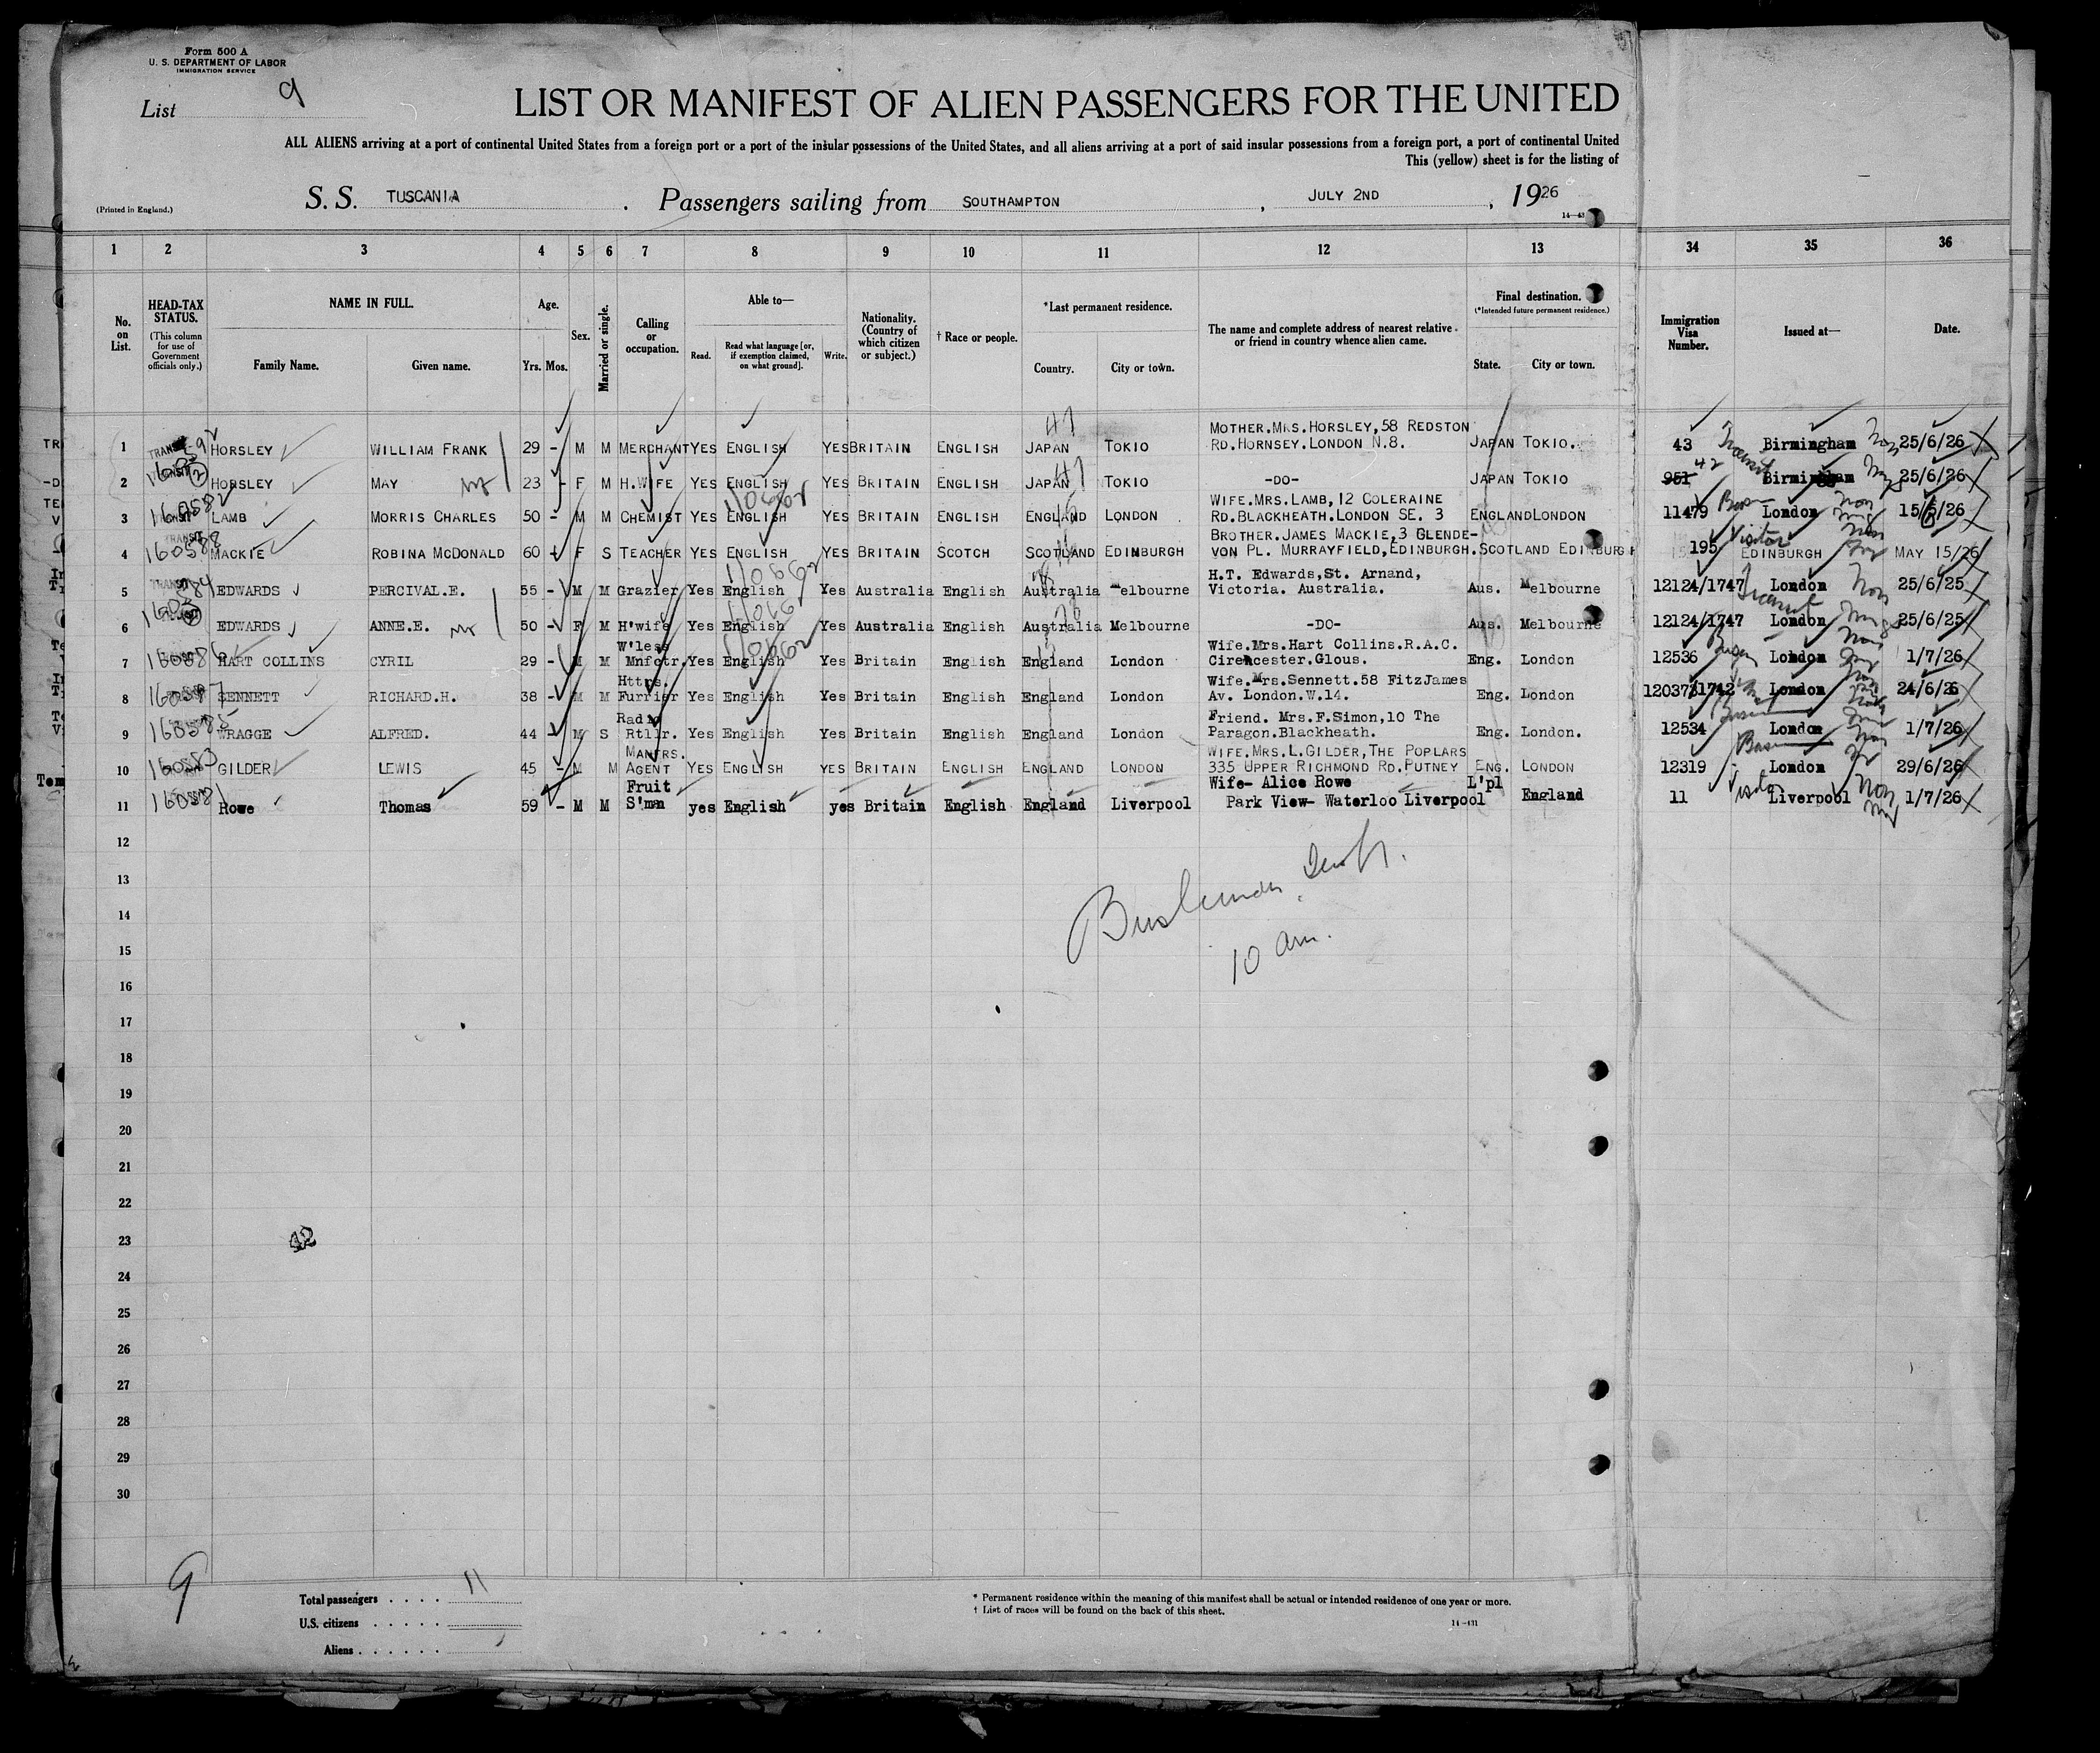 Form 500 A
U. S. DEPARTMENT OF LABOR
IMMIGRATION SERVICE
List 9
LIST OR MANIFEST OF ALIEN PASSENGERS FOR THE UNITED
ALL ALIENS arriving at a port of continental United States from a foreign port or a port of the insular possessions of the United States, and all aliens arriving at a port of said insular possessions from a foreign port, a port of continental United
This (yellow) sheet is for the listing of
(Printed in England.)
S. S. TUSCANIA . Passengers sailing from SOUTHAMPTON , JULY 2ND , 1926
1 2 3 4 5 6 7 8 9 10 11 12 13 34 35 36
No. on List.
HEAD-TAX STATUS.
(This column for use of Government officials only.)
NAME IN FULL.
Family Name. Given name.
Age.
Yrs. Mos.
Sex.
Married or single.
Calling or occupation.
Able to—
Read. Read what language [or, if exemption claimed, on what ground]. Write.
Nationality. (Country of which citizen or subject.)
† Race or people.
*Last permanent residence.
Country. City or town.
The name and complete address of nearest relative or friend in country whence alien came.
Final destination.
(*Intended future permanent residence.)
State. City or town.
Immigration Visa Number.
Issued at—
Date.
1 HORSLEY WILLIAM FRANK 29 - M M MERCHANT YES ENGLISH YES BRITAIN ENGLISH JAPAN TOKIO MOTHER.MRS.HORSLEY,58 REDSTON RD.HORNSEY.LONDON N.8. JAPAN TOKIO. 43 Transit Birmingham 25/6/26
2 HORSLEY MAY 23 - F M H.WIFE YES ENGLISH YES BRITAIN ENGLISH JAPAN TOKIO -DO- JAPAN TOKIO 951 42 Birmingham 25/6/26
3 160582 LAMB MORRIS CHARLES 50 - M M CHEMIST YES ENGLISH YES BRITAIN ENGLISH ENGLAND LONDON WIFE.MRS.LAMB,12 COLERAINE RD.BLACKHEATH.LONDON SE. 3 ENGLAND LONDON 11479 London 15/6/26
4 160588 MACKIE ROBINA MCDONALD 60 F S TEACHER YES ENGLISH YES BRITAIN SCOTCH SCOTLAND EDINBURGH BROTHER.JAMES MACKIE,3 GLENDE-VON PL. MURRAYFIELD,EDINBURGH. SCOTLAND EDINBURGH 195 Visitor EDINBURGH MAY 15/26
5 EDWARDS PERCIVAL.E. 55 - M M Grazier Yes English Yes Australia English Australia Melbourne H.T. Edwards,St. Arnand, Victoria. Australia. Aus. Melbourne 12124/1747 Transit London 25/6/25
6 EDWARDS ANNE.E. 50 - F M H'wife Yes English Yes Australia English Australia Melbourne -DO- Aus. Melbourne 12124/1747 London 25/6/25
7 160586 HART COLLINS CYRIL 29 - M M W'less Mnfctr. Yes English Yes Britain English England London Wife.Mrs.Hart Collins.R.A.C. Cirencester.Glous. Eng. London 12536 London 1/7/26
8 160587 SENNETT RICHARD.H. 38 - M M Furrier Yes English Yes Britain English England London Wife.Mrs.Sennett.58 FitzJames Av. London.W.14. Eng. London London 24/6/26
9 160585 WRAGGE ALFRED. 44 - M S Radio Rtlr. Yes English Yes Britain English England London Friend. Mrs.F.Simon,10 The Paragon.Blackheath. Eng. London. 12534 London 1/7/26
10 160583 GILDER LEWIS 45 - M M MANFRS. AGENT YES ENGLISH YES BRITAIN ENGLISH ENGLAND LONDON WIFE,MRS.L.GILDER,THE POPLARS 335 UPPER RICHMOND RD.PUTNEY ENG. LONDON 12319 London 29/6/26
11 160581 Rowe Thomas 59 - M M Fruit S'man yes English yes Britain English England Liverpool Wife- Alice Rowe Park View- Waterloo Liverpool L'pl England 11 Visitor Liverpool 1/7/26
12
13
14
15
10 am.
16
17
18
19
20
21
22
23
24
25
26
27
28
29
30
9
Total passengers . . . . 11
U.S. citizens . . . . .
Aliens . . . . . .
* Permanent residence within the meaning of this manifest shall be actual or intended residence of one year or more.
† List of races will be found on the back of this sheet.
14-431